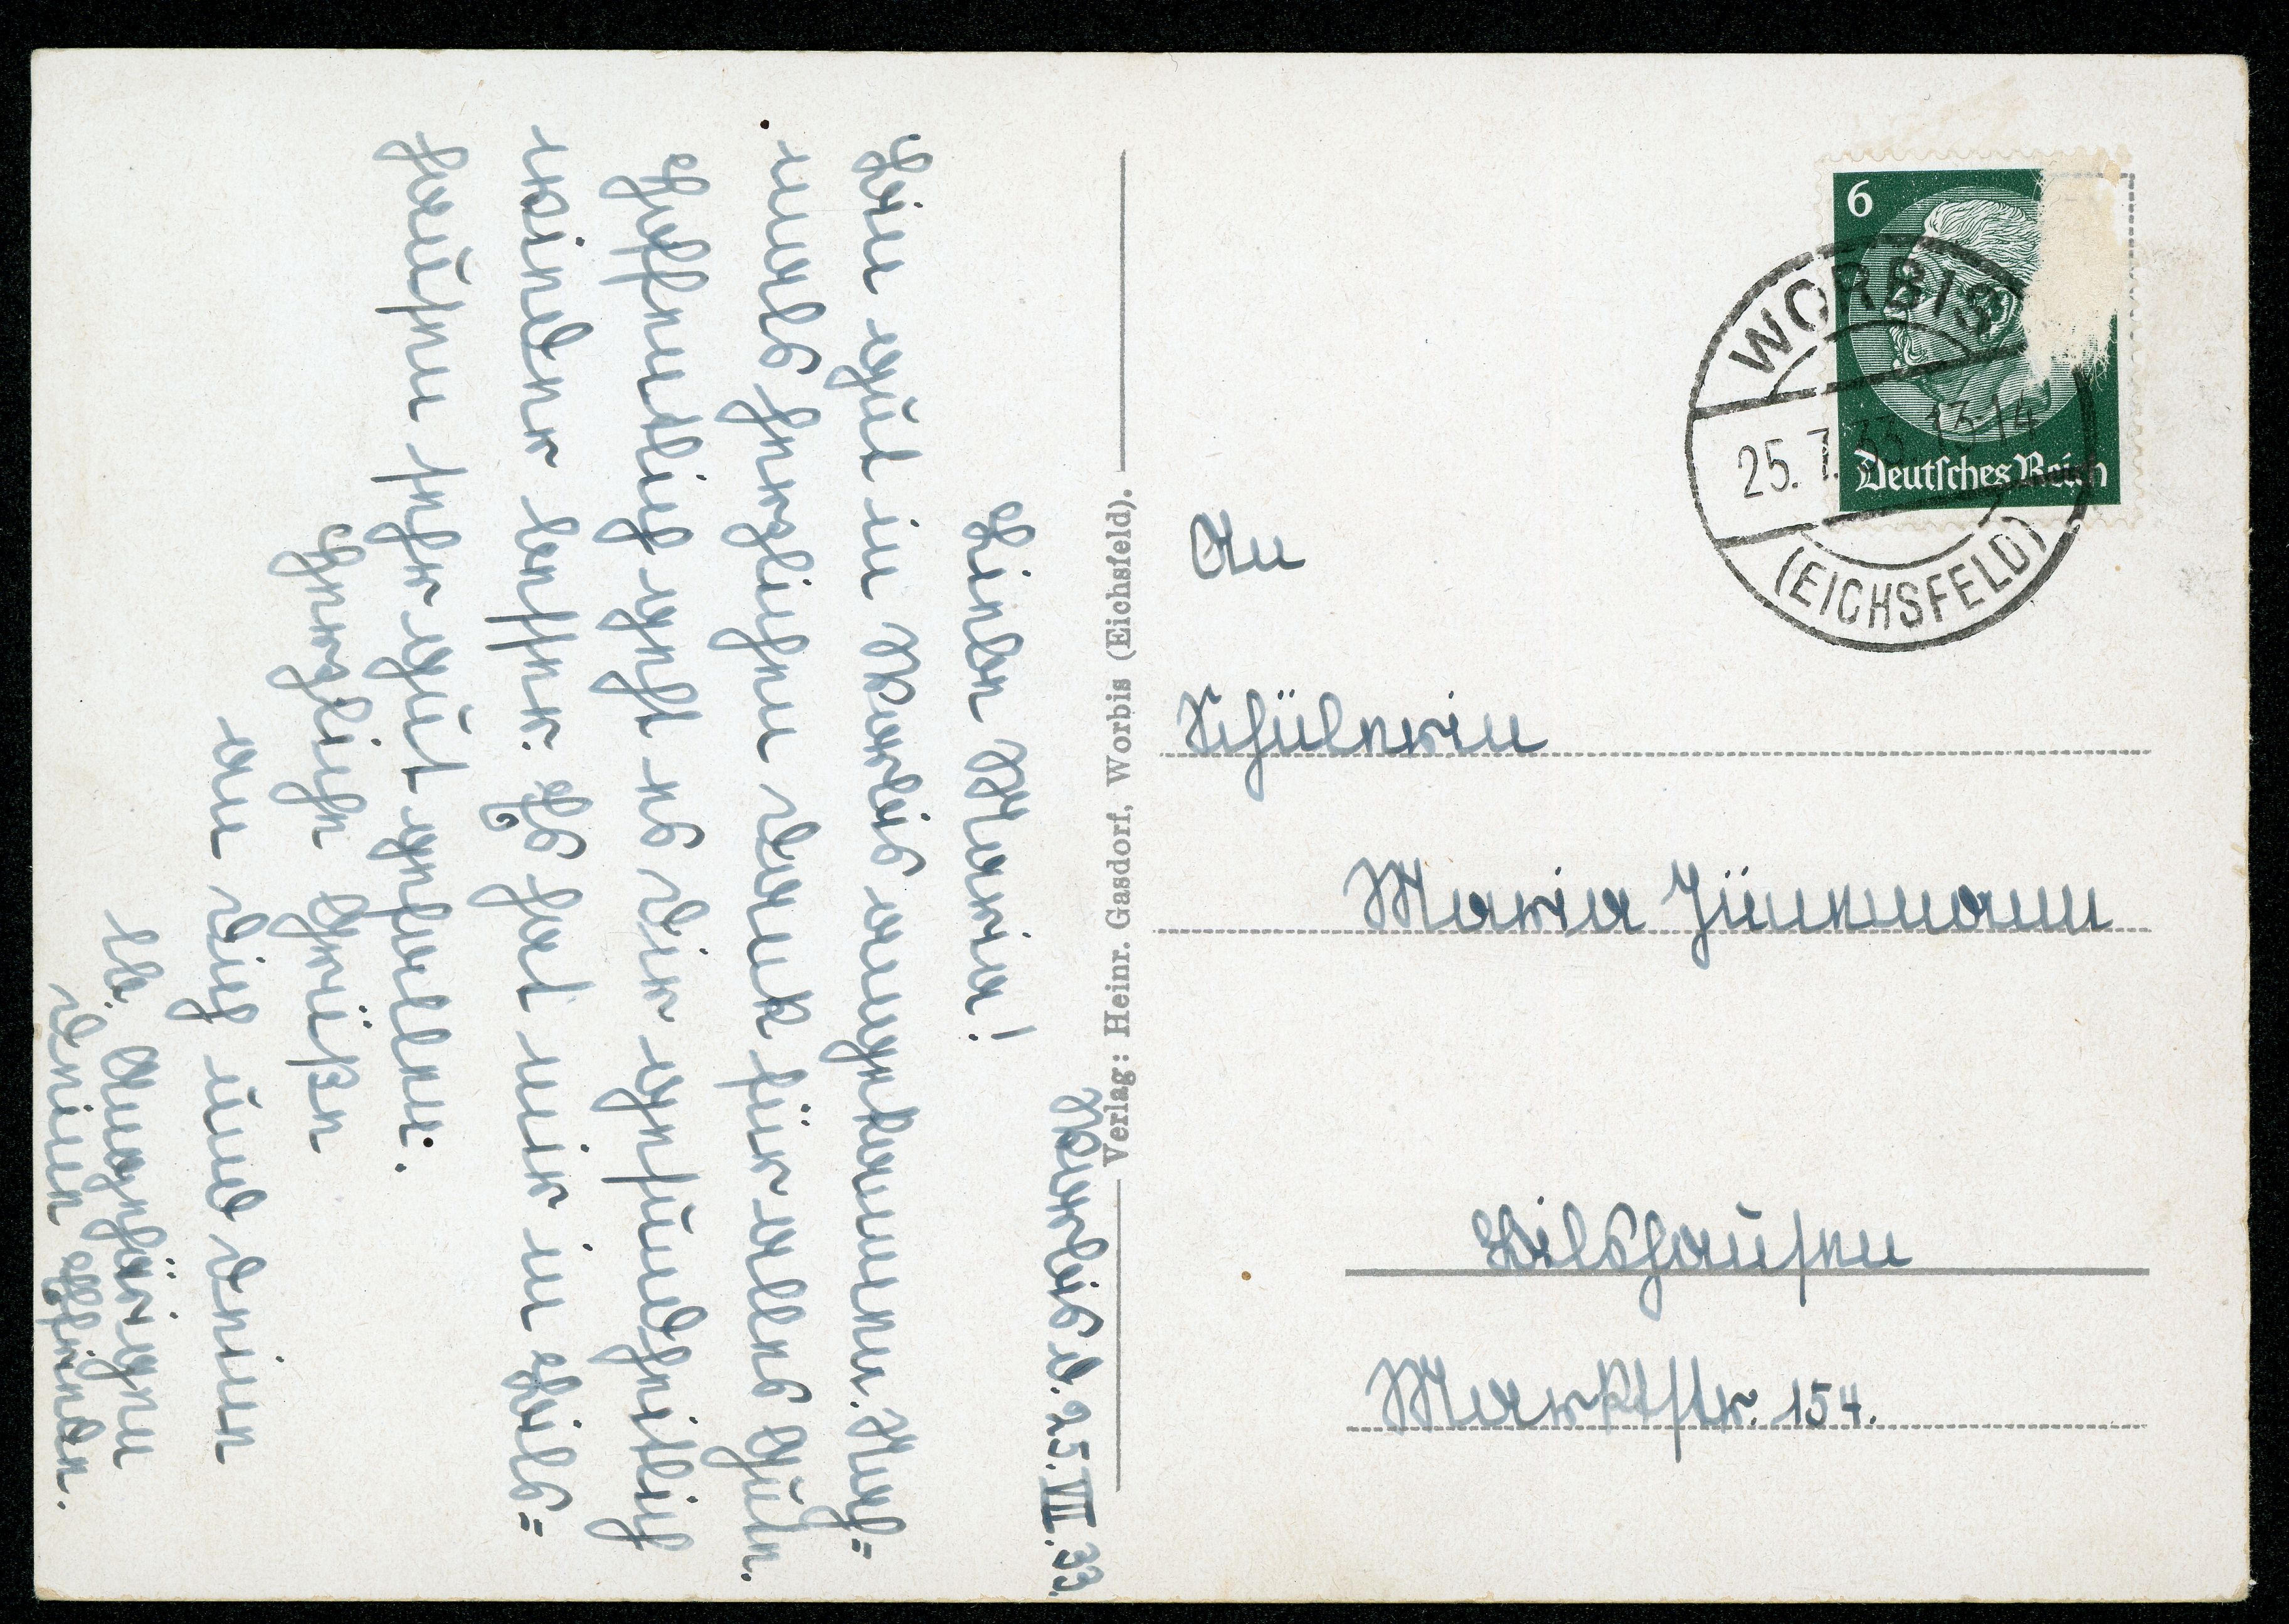 6
WORBIS
25.7.33.13-14
(EICHSFELD)
Deutsches Reich
An
Schülerin
Maria Jünemann
Bilshausen
Marktstr. 154.
Verlag: Heinr. Gasdorf, Worbis (Eichsfeld).
Worbis d. 25.VII.33.
Liebe Maria!
Bin gut in Worbis angekommen. Noch=
mals herzlichen Dank für alles Gute.
Hoffentlich geht es dir gesundheitlich
wieder besser. Es hat mir in Bils=
hausen sehr gut gefallen.
Herzliche Grüße
an dich und deine
lb. Angehörigen
deine Elfriede.